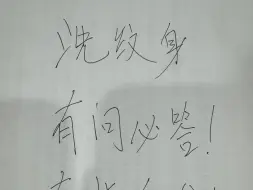 洗纹身
有问必答!